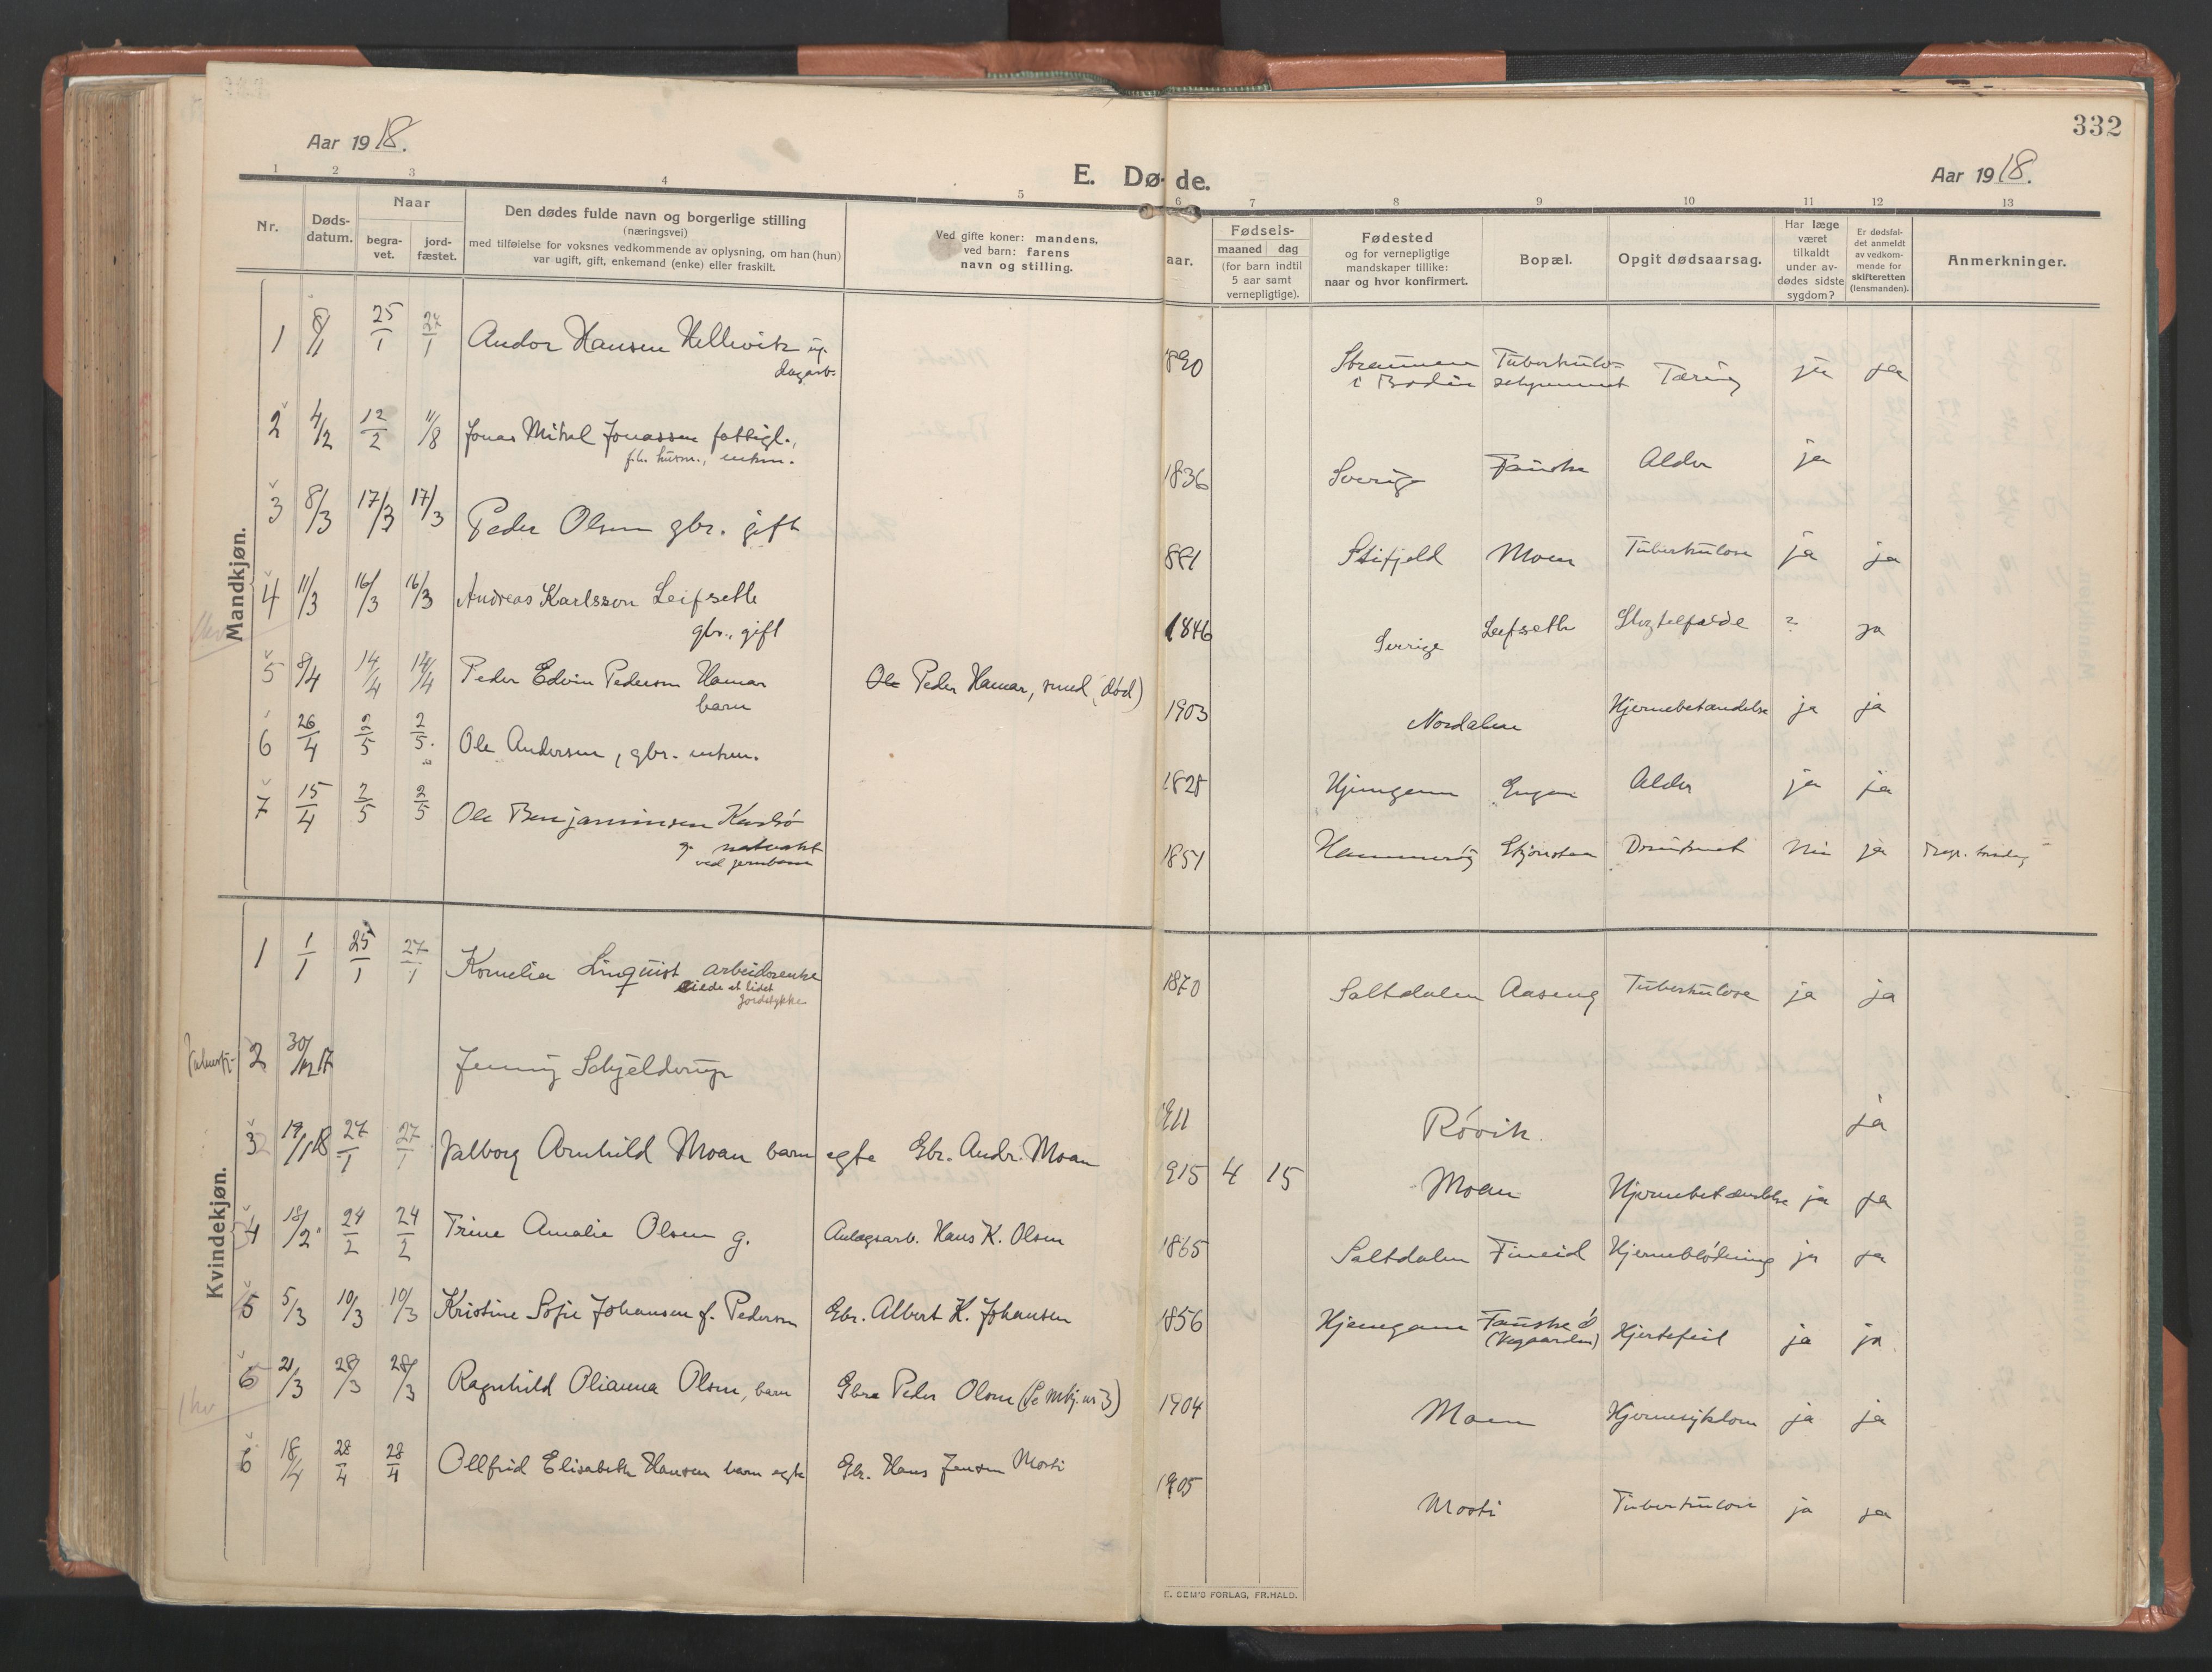 332
Aar 1918.
E. Døde.
Aar 1918.
1 2 3 4 5 6 7 8 9 10 11 12 13
Nr.
Døds-
datum.
Naar
begra-
vet.
jord-
fæstet.
Den dødes fulde navn og borgerlige stilling
(næringsvei)
med tilføielse for voksnes vedkommende av oplysning, om han (hun)
var ugift, gift, enkemand (enke) eller fraskilt.
Ved gifte koner: mandens,
ved barn: farens
navn og stilling.
aar.
Fødsels-
maaned dag
(for barn indtil
5 aar samt
vernepligtige).
Fødested
og for vernepligtige
mandskaper tillike:
naar og hvor konfirmert.
Bopæl.
Opgit dødsaarsag.
Har læge
været
tilkaldt
under av-
dødes sidste
sygdom?
Er dødsfal-
det anmeldt
av vedkom-
mende for
skifteretten
(lensmanden).
Anmerkninger.
Mandkjøn.
1 8/1 25/1 27/1 Andor Hansen Hellevik ug. 1890 Straumen Tuberkulo- Tæring ja ja
dagarb. i Bodin sehjemmet
2 4/2 12/2 11/8 Jonas Mikal Jonassen fattigl., 1836 Sverige Fauske Alder ja
f.h. husm., enkem.
3 8/3 17/3 17/3 Peder Olsen gbr. gift Stifjeld Moen Tuberkulose ja ja
4 11/3 16/3 16/3 Andreas Karlsson Leifsethe 1846 Sverige Leifseth ? ja
gbr., gift
5 8/4 14/4 14/4 Peder Edvin Pedersen Hamar Ole Peder Hamar, smed (død) 1903 Nordalen Hjernebetændelse ja ja
barn
6 26/4 2/5 2/5. Ole Andersen, gbr. enkem. 1828 Hjemgam Engan Alder ja ja
7 15/4 2/5 2/5 Ole Benjaminsen 1851 Hammerøy Druknet Nei ja
g.
ved jernbane
Kvindekjøn.
1 1/1 25/1 27/1 Kornelia Linquist arbeidsenke 1870 Saltdalen Aaseng Tuberkulose ja ja
eiede et lidet
jordstykke
2 30/12 17 Jenny Schjelderup 1911 Røvik ja
3 19/1 18 27/1 27/1 Valborg Arnhild Moan barn egte Gbr. Andr. Moan 1915 4 15 Moan Hjernebetændelse ja ja
4 18/2 24/2 24/2 Trine Amalie Olsen g. Anlægsarb. Hans K. Olsen 1865 Saltdalen Fineid Hjerneblødning ja ja
5 5/3 10/3 10/3 Kristine Sofie Johansen f. Pedersen Gbr. Albert K. Johansen 1856 Hjemgam Fauske Hjertefeil ja ja
6 21/3 28/3 28/3 Ragnhild Olianna Olsen, barn Gbr Peder Olsen (Se Mkj. nr 3) 1904 Moen Hjernesykdom ja ja
6 18/4 28/4 28/4 Ollfrid Elisabeth Hansen barn egte Gbr. Hans Jensen Mosti 1905 Mosti Tuberkulose ja ja
E. SEM'S FORLAG, FR.HALD.